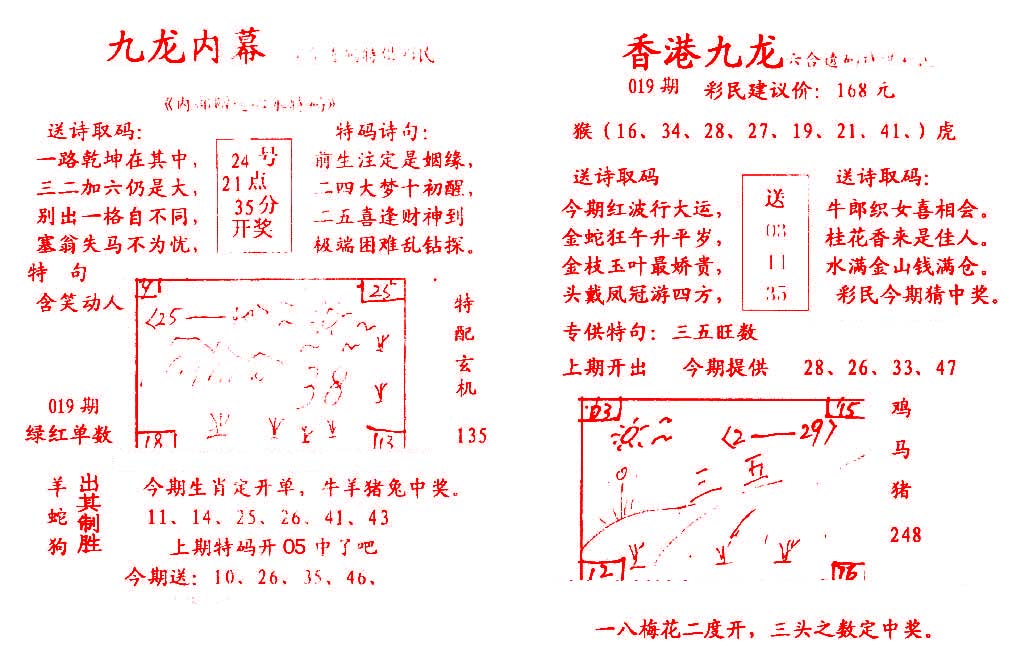 九龙内幕
送诗取码：
一路乾坤在其中，
三二加六仍是大，
别出一格自不同，
塞翁失马不为忧，
24 号
21 点
35 分
开奖
特码诗句：
前生注定是姻缘，
二四大梦十初醒，
二五喜逢财神到
极端困难乱钻探。
特 句
含笑动人
25
25
38
18
113
特配玄机
135
019 期
绿红单数
羊
蛇
狗
出其制胜
今期生肖定开单，牛羊猪兔中奖。
11、14、25、26、41、43
上期特码开 05 中了吧
今期送：10、26、35、46、
香港九龙
019 期 彩民建议价：168 元
猴（16、34、28、27、19、21、41、）虎
送诗取码
今期红波行大运，
金蛇狂午升平岁，
金枝玉叶最娇贵，
头戴凤冠游四方，
送
03
11
35
送诗取码：
牛郎织女喜相会。
桂花香来是佳人。
水满金山钱满仓。
彩民今期猜中奖。
专供特句：三五旺数
上期开出 今期提供 28、26、33、47
03
15
〈2——29〉
二 五
12
76
鸡
马
猪
248
一八梅花二度开，三头之数定中奖。